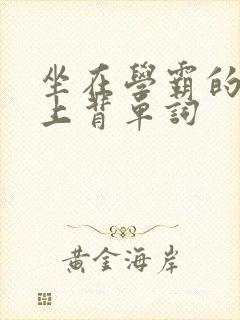 坐在學霸的
上背單詞
黃金海岸